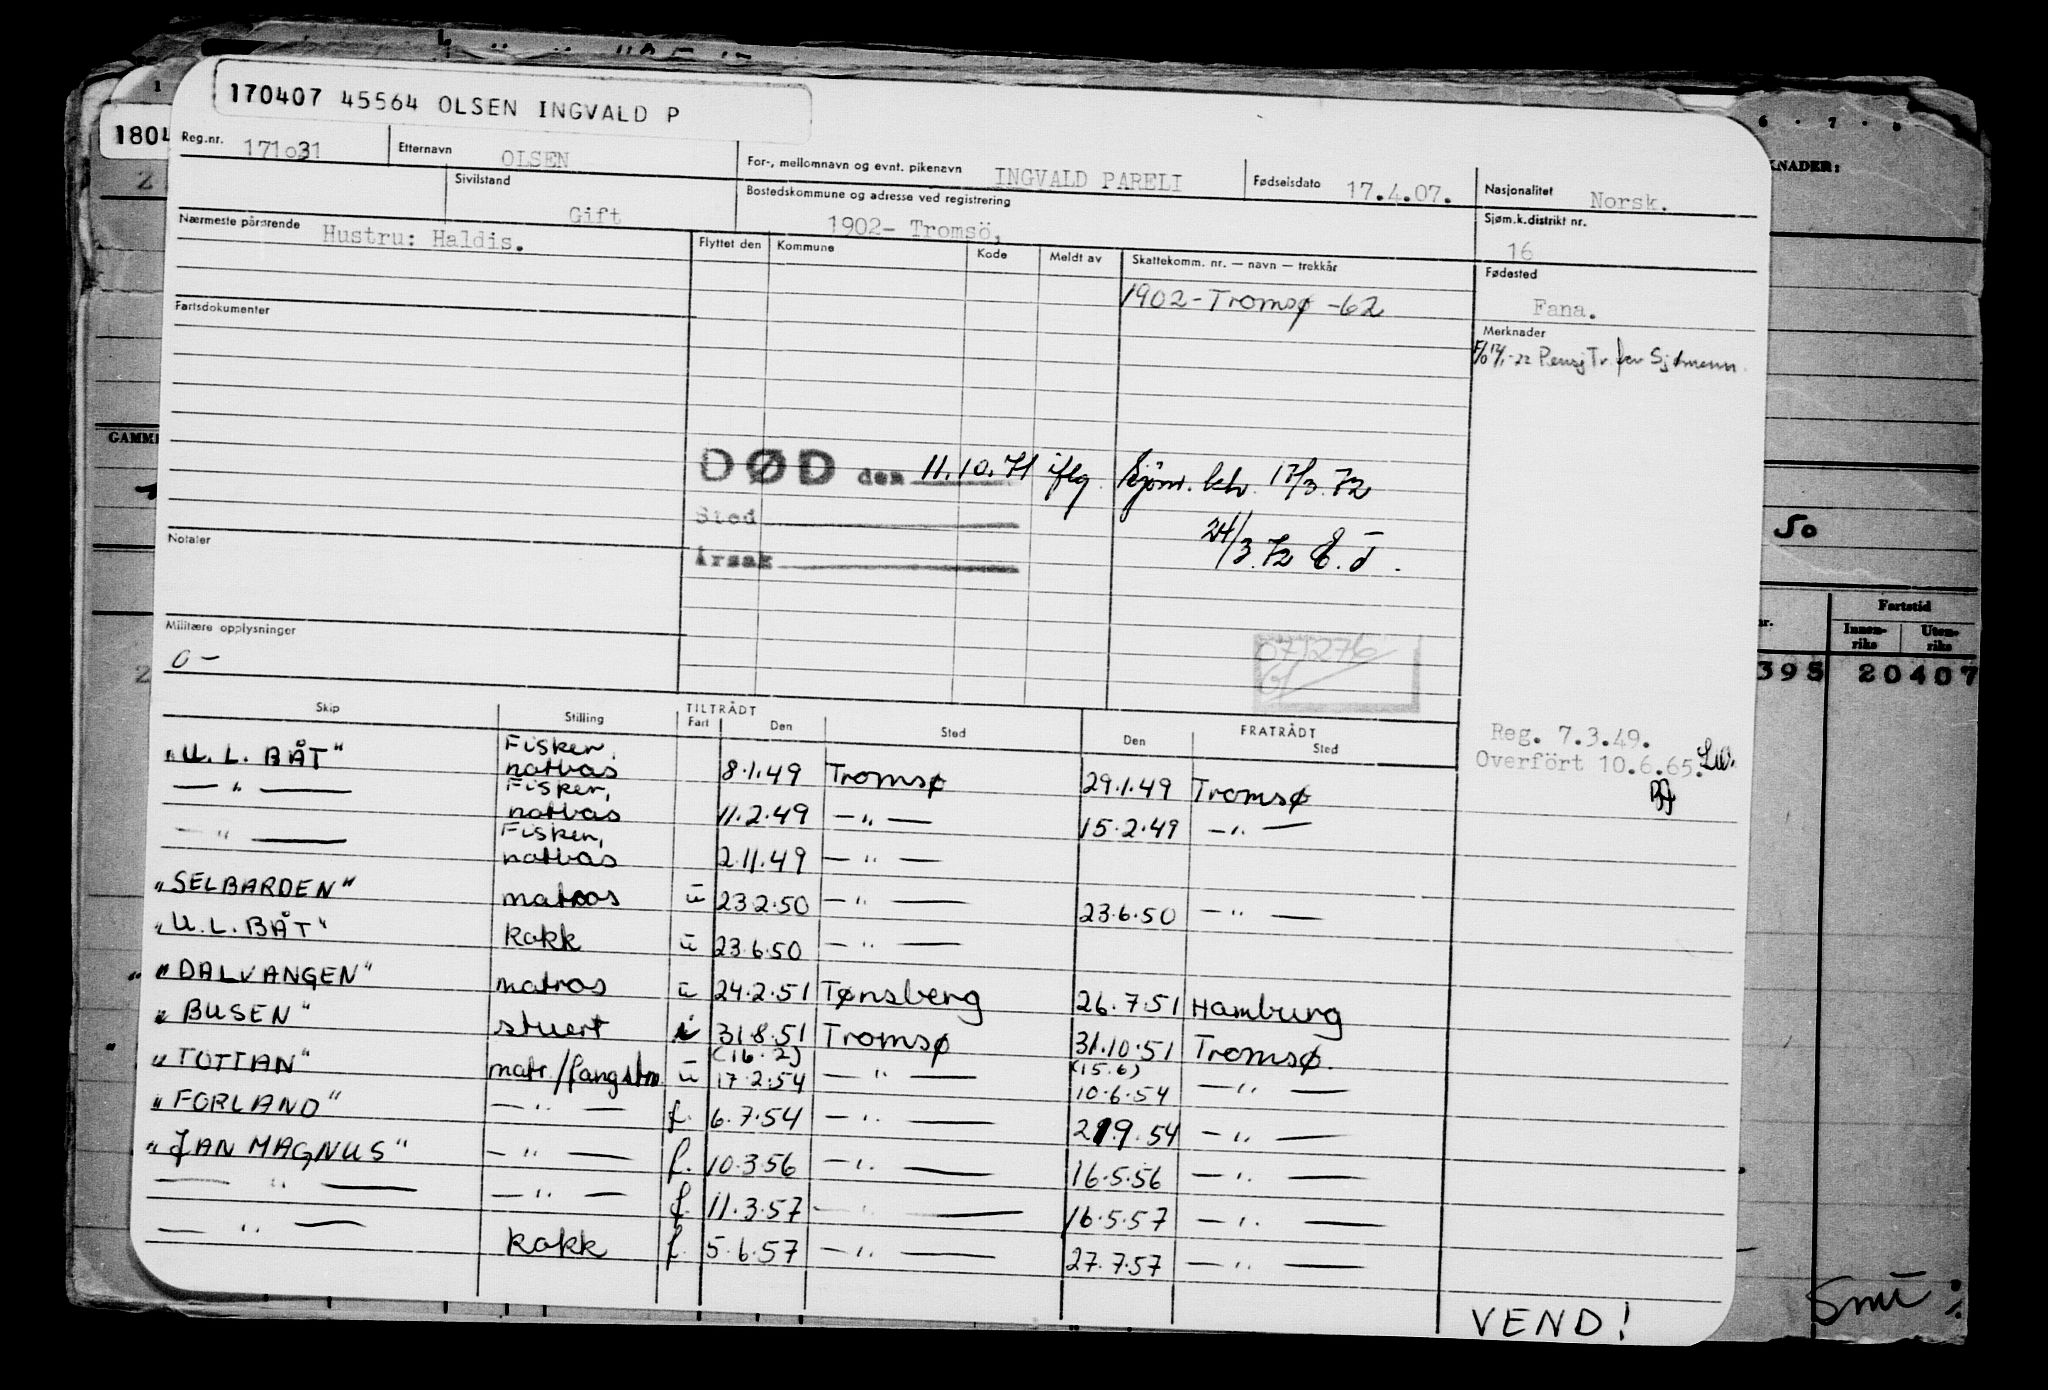 170407 45564 OLSEN INGVALD P
1804
Reg.nr. 171031 Etternavn OLSEN For-, mellomnavn og evnt. pikenavn INGVALD PARELI Fødselsdato 17.4.07. Nasjonalitet Norsk.
Sivilstand Gift Bostedskommune og adresse ved registrering 1902- Tromsö, Sjøm.k.distrikt nr. 16
Nærmeste pårørende Hustru: Haldis. Flyttet den Kommune Kode Meldt av Skattekomm. nr. — navn — trekkår Fødested Fana.
1902 - Tromsø -62
Fartsdokumenter
Merknader
Pensj Tr. for Sjømenn.
KNADER:
6 . 7 . 8
GAMME
DØD den 11.10.71 iflg. Sjöm. ktr. 17/3.72
Sted
24/3.72 E.T.
Årsak
50
Notater
Militære opplysninger
0 -
071276
Fartstid
Innen-riks Uten-riks
395 20407
Skip Stilling TILTRÅDT Fart Den Sted FRATRÅDT Den Sted
Reg. 7.3.49.
Overfört 10.6.65.
"U. L. BÅT" Fisker, notbas 8.1.49 Tromsø 29.1.49 Tromsø
— " — Fisker, notbas 11.2.49 — " — 15.2.49 — " —
— " — Fisker, notbas 2.11.49 — " —
"SELBARDEN" matros u 23.2.50 — " — 23.6.50 — " —
"U. L. BÅT" kokk u 23.6.50 — " —
"DALVANGEN" matros u 24.2.51 Tønsberg 26.7.51 Hamburg
"BUSEN" stuert i 31.8.51 Tromsø 31.10.51 Tromsø.
"TOTTAN" matr./fangstm u (16.2) 17.2.54 — " — (15.6) 10.6.54 — " —
"FORLAND" — " — f. 6.7.54 — " — 21.9.54 — " —
"JAN MAGNUS" — " — f. 10.3.56 — " — 16.5.56 — " —
— " — — " — f. 11.3.57 — " — 16.5.57 — " —
— " — kokk f. 5.6.57 — " — 27.7.57 — " —
VEND!